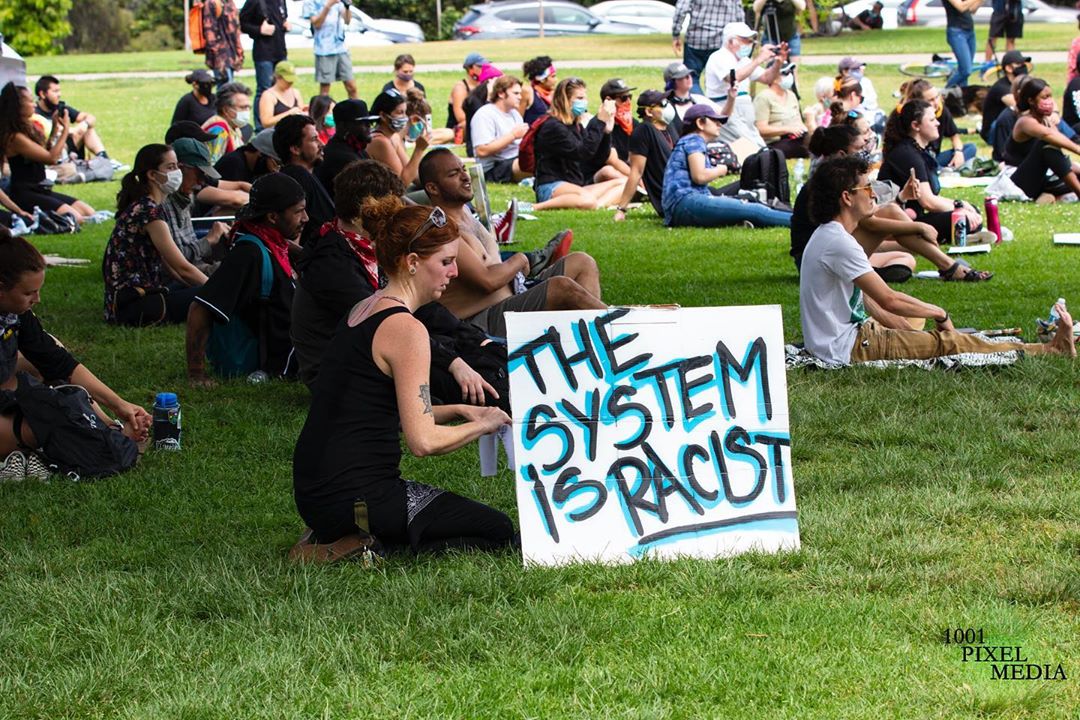 THE
SYSTEM
iS RACIST
1001
PIXEL
MEDIA